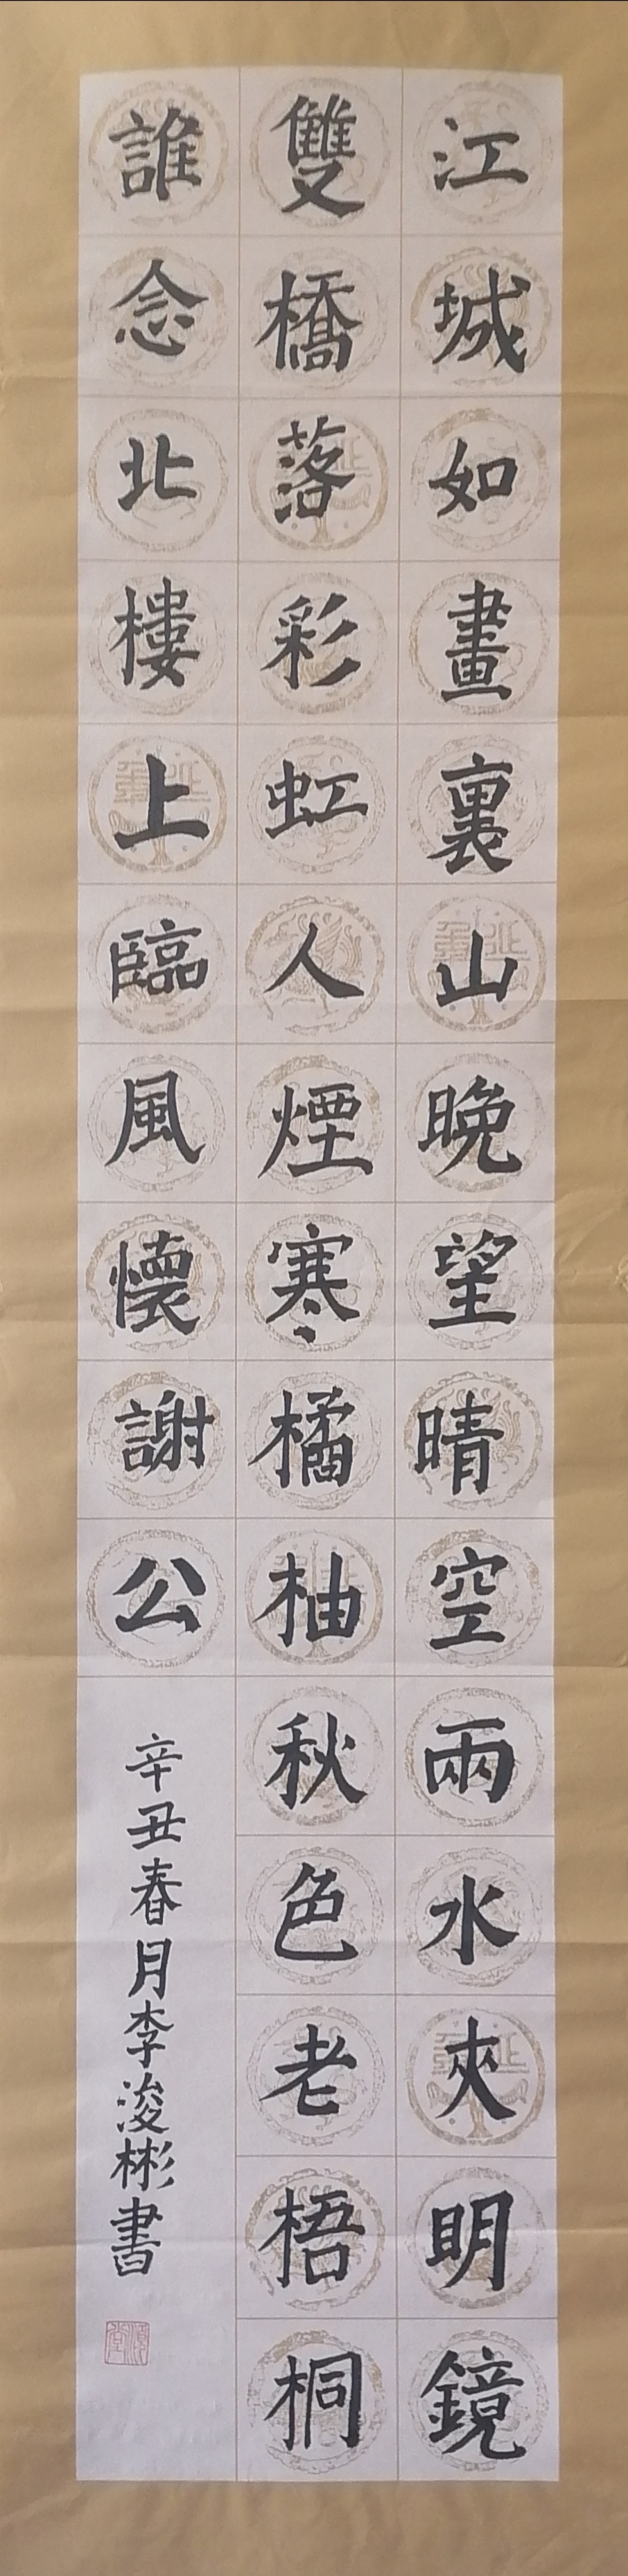 江城如畫裏山晚望晴空兩水夾明鏡
雙橋落彩虹人煙寒橘柚秋色老梧桐
誰念北樓上臨風懷謝公
辛丑春月李浚彬書